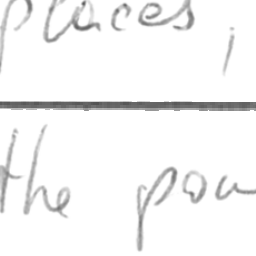 places,
the pow